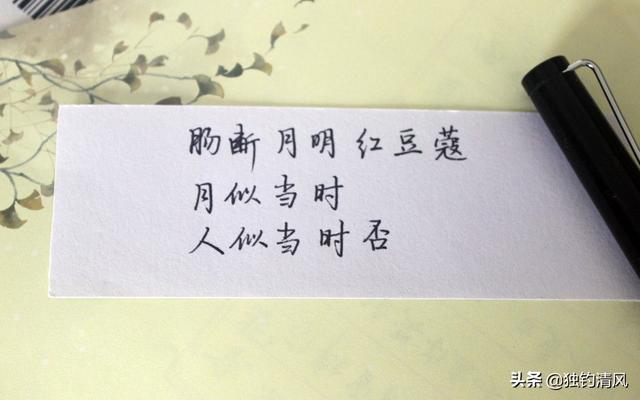 肠断月明红豆蔻
月似当时
人似当时否
头条 @独钓清风